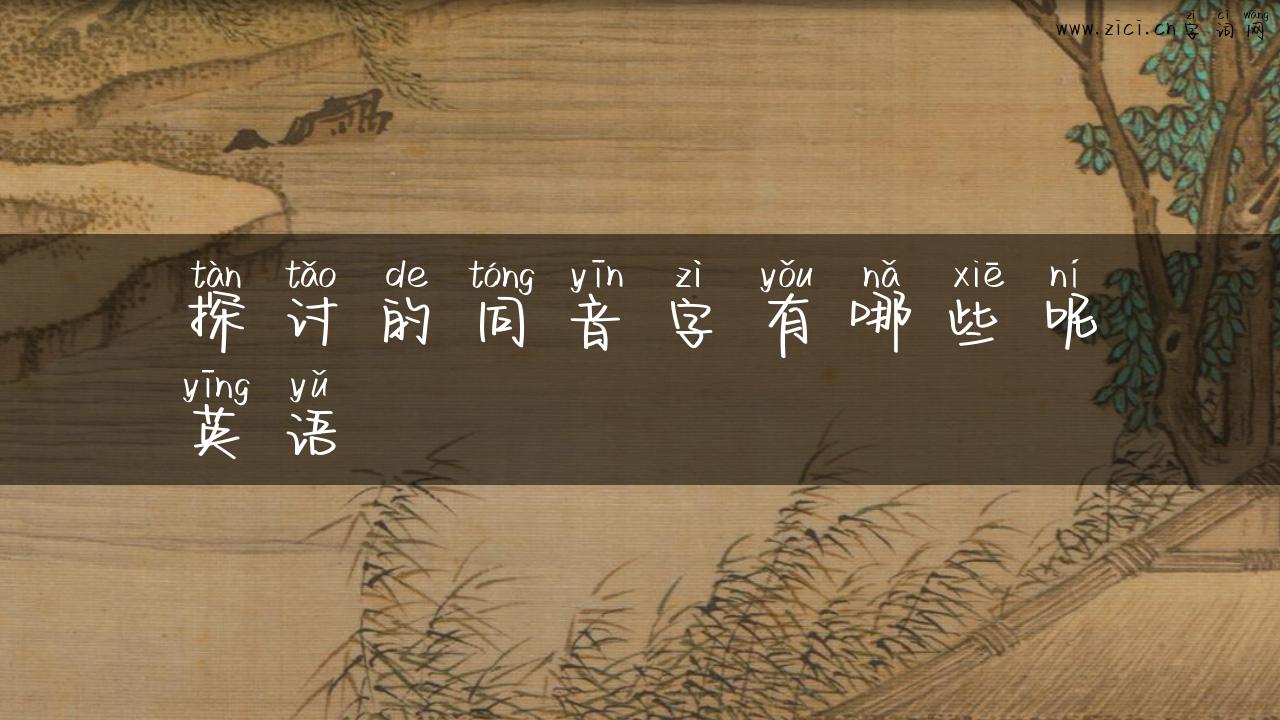 zì cí wǎng
www.zici.cn字词网
tàn tǎo de tóng yīn zì yǒu nǎ xiē ní
探讨的同音字有哪些呢
yīng yǔ
英语